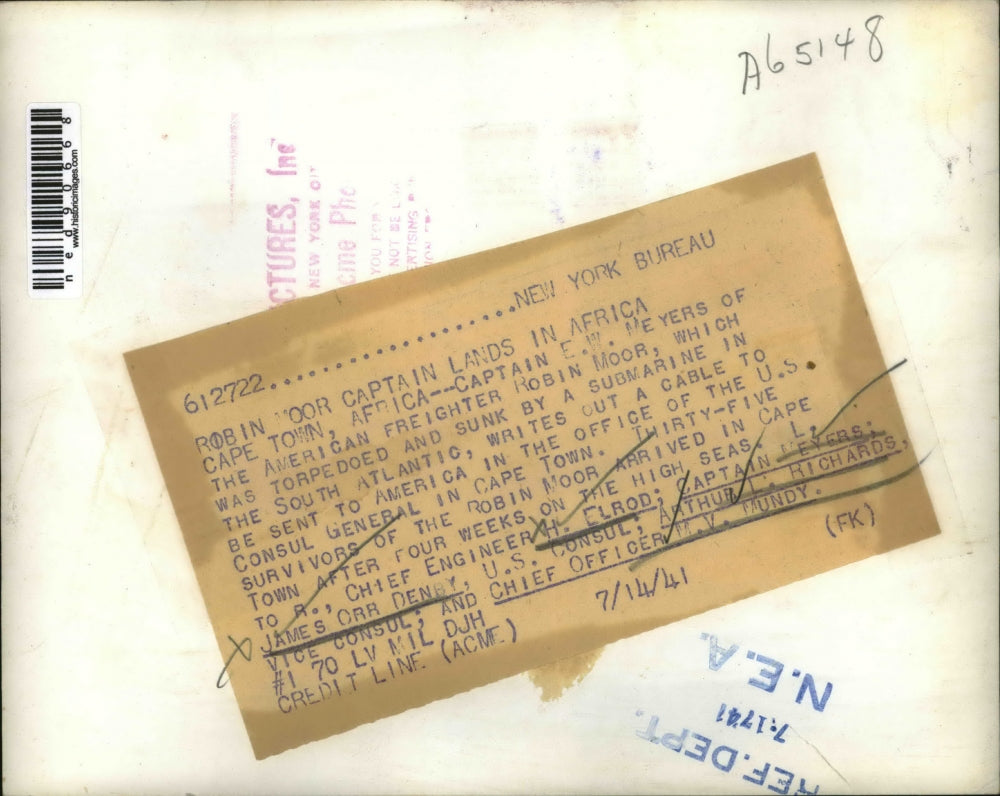 A65148
ned90668
www.historicimages.com
CTURES, Inc
NEW YORK
NOT BE
612722....................NEW YORK BUREAU
ROBIN MOOR CAPTAIN LANDS IN AFRICA
CAPE TOWN, AFRICA--CAPTAIN E.W. MEYERS OF
THE AMERICAN FREIGHTER ROBIN MOOR, WHICH
WAS TORPEDOED AND SUNK BY A SUBMARINE IN
THE SOUTH ATLANTIC, WRITES OUT A CABLE TO
BE SENT TO AMERICA IN THE OFFICE OF THE U.S.
CONSUL GENERAL IN CAPE TOWN. THIRTY-FIVE
SURVIVORS OF THE ROBIN MOOR ARRIVED IN CAPE
TOWN AFTER FOUR WEEKS ON THE HIGH SEAS. L.
TO R., CHIEF ENGINEER H. ELROD; CAPTAIN MEYERS;
JAMES ORR DENBY, U.S. CONSUL; ARTHUR RICHARDS,
VICE CONSUL; AND CHIEF OFFICER MUNDY.
#1 70 LV MIL DJH 7/14/41 (FK)
CREDIT LINE (ACME)
N.E.A.
7-1741
REF. DEPT.